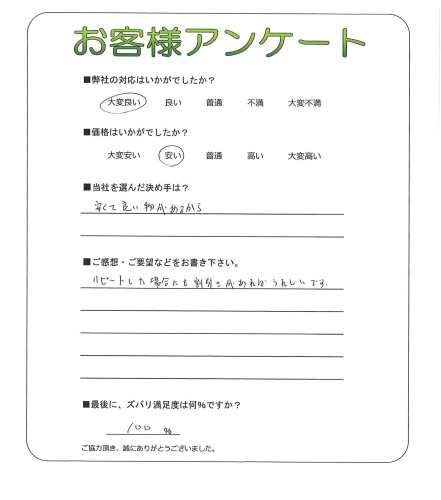 お客様アンケート
■弊社の対応はいかがでしたか？
大変良い 良い 普通 不満 大変不満
■価格はいかがでしたか？
大変安い 安い 普通 高い 大変高い
■当社を選んだ決め手は？
安くて良い物があるから
■ご感想・ご要望などをお書き下さい。
リピートした場合にも割引きがあればうれしいです.
■最後に、ズバリ満足度は何%ですか？
100 %
ご協力頂き、誠にありがとうございました。